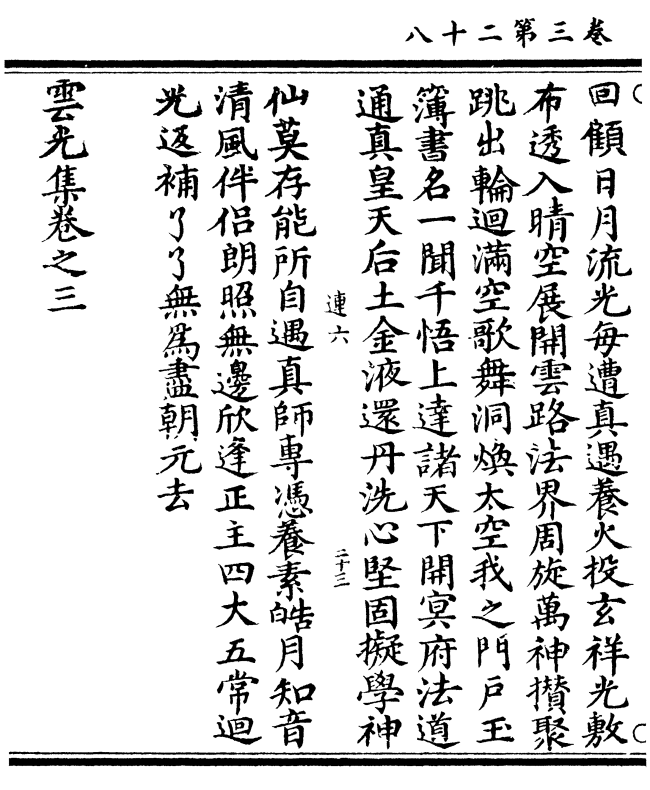 卷三第二十八
回顧日月流光每遭真遇養火投玄祥光敷
布透入晴空展開雲路法界周旋萬神攅聚
跳出輪迴滿空歌舞洞煥太空我之門戶玉
簿書名一聞千悟上達諸天下開冥府法道
通真皇天后土金液還丹洗心堅固擬學神
連六
二十三
仙莫存能所自遇真師專憑養素皓月知音
清風伴侶朗照無邊欣逢正主四大五常迴
光返補了了無為盡朝元去
雲光集卷之三